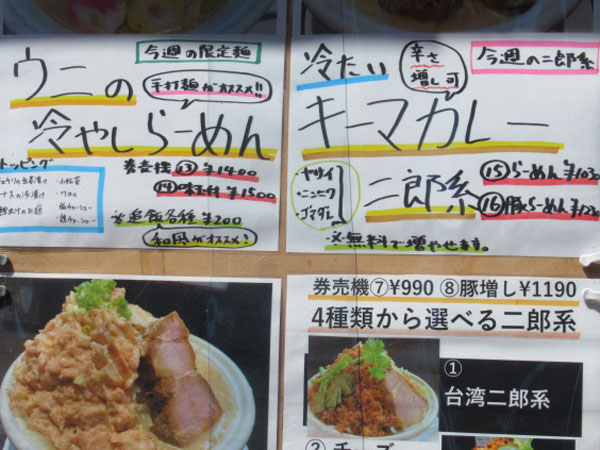 今週の限定麺
ウニの
手打麺がオススメ!!
冷やしらーめん
トッピング
券売機⑬¥1400
⑭味玉付¥1500
・小松菜
・ワカメ
※追飯各種¥200
和風がオススメ!
今週の二郎系
冷たい
辛さ
増し可
キーマカレー
二郎系
・ヤサイ
・ニンニク
・ゴマダレ
⑮らーめん¥1030
⑯豚らーめん
※無料で増やせます。
券売機⑦¥990 ⑧豚増し¥1190
4種類から選べる二郎系
①
台湾二郎系
② チーズ